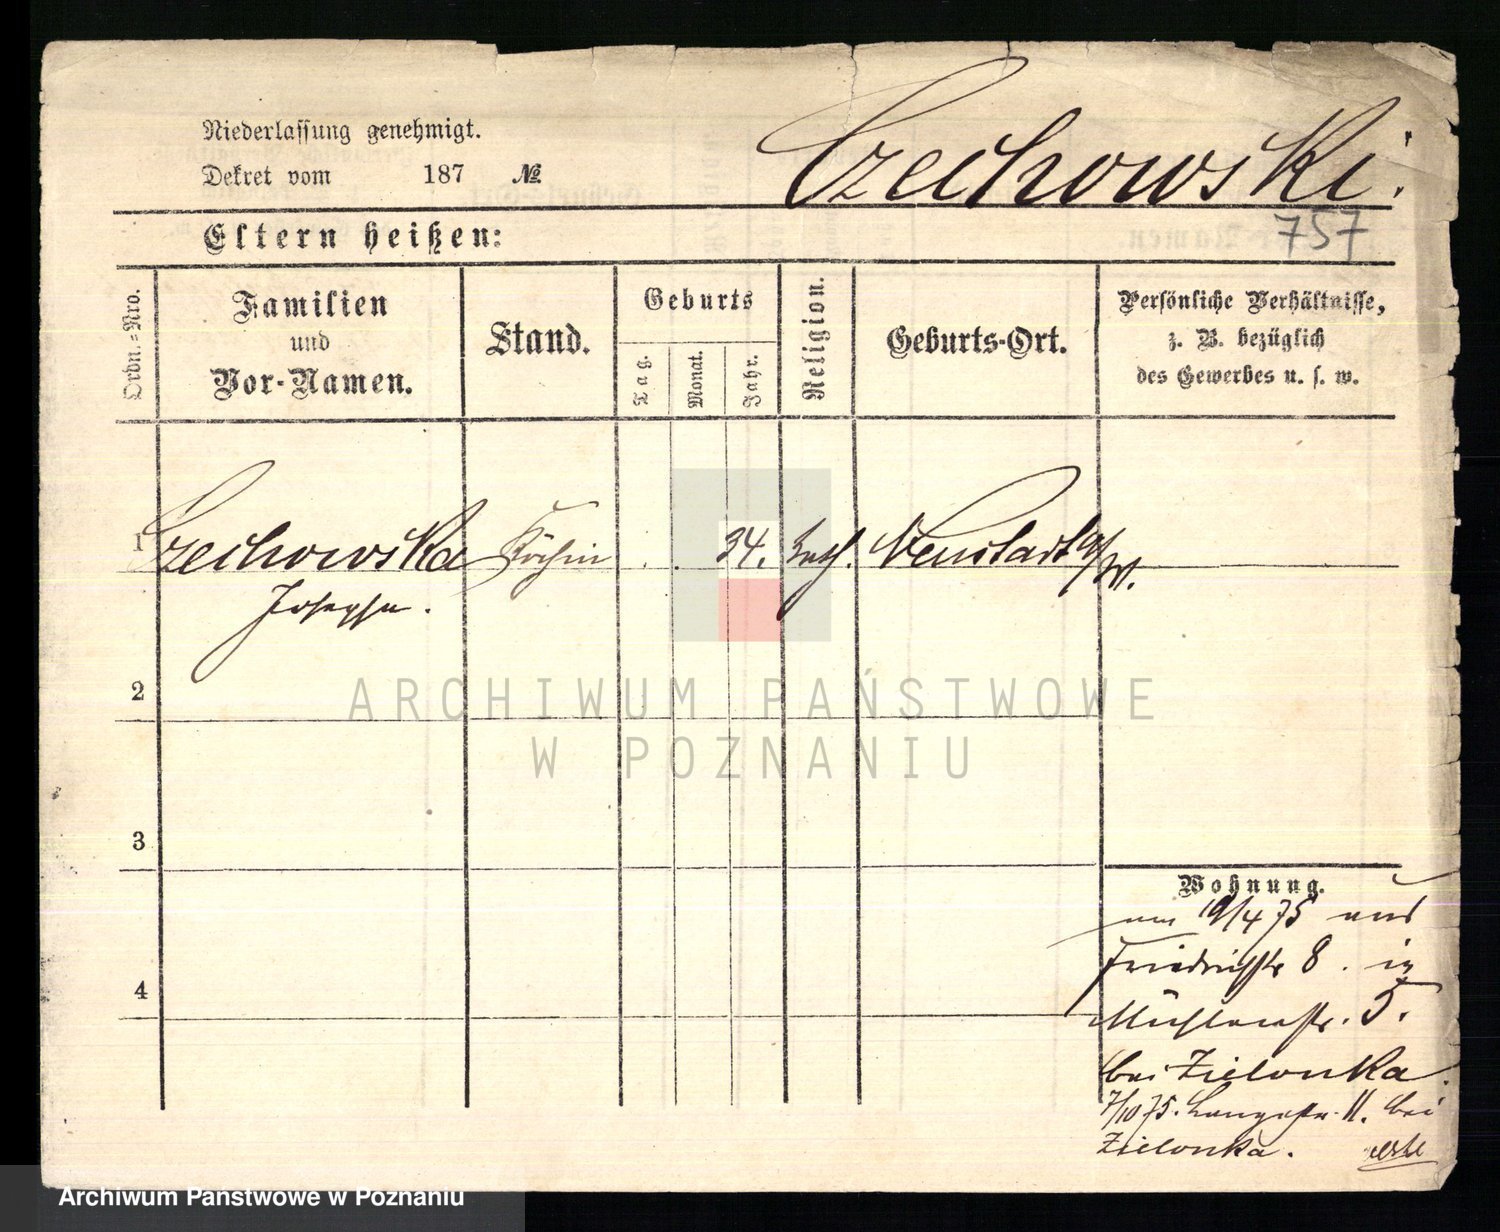 Niederlassung genehmigt.
Dekret vom 187 №
Czechowski.
757
Eltern heißen:
Ordn.-Nro.
Familien
und
Vor-Namen.
Stand.
Geburts
Tag.
Monat.
Jahr.
Religion.
Geburts-Ort.
Persönliche Verhältnisse,
z. B. bezüglich
des Gewerbes u. s. w.
1 Czechowska Köchin . . 34. kath. Neustadt a/W.
Josepha.
2
3
4
Wohnung.
am 19/4 75 aus
Friedrichstr 8. in
Mühlenstr. 5.
bei Zielonka.
7/10 75. Langestr. 11. bei
Zielonka.
ARCHIWUM PAŃSTWOWE
W POZNANIU
Archiwum Państwowe w Poznaniu